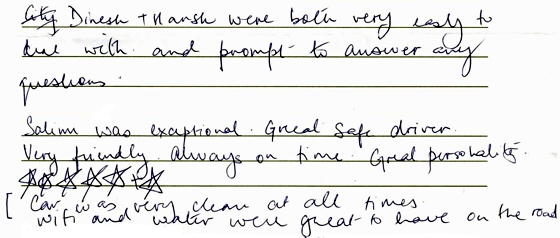 Dinesh + Harsh were both very easly to
deal with. and prompt to answer any
questions.
Salim was exceptional. Great safe driver.
Very friendly. Always on time. Great personality.
☆☆☆☆☆+☆
[ Car was very clean at all times.
wifi and water were great to have on the road